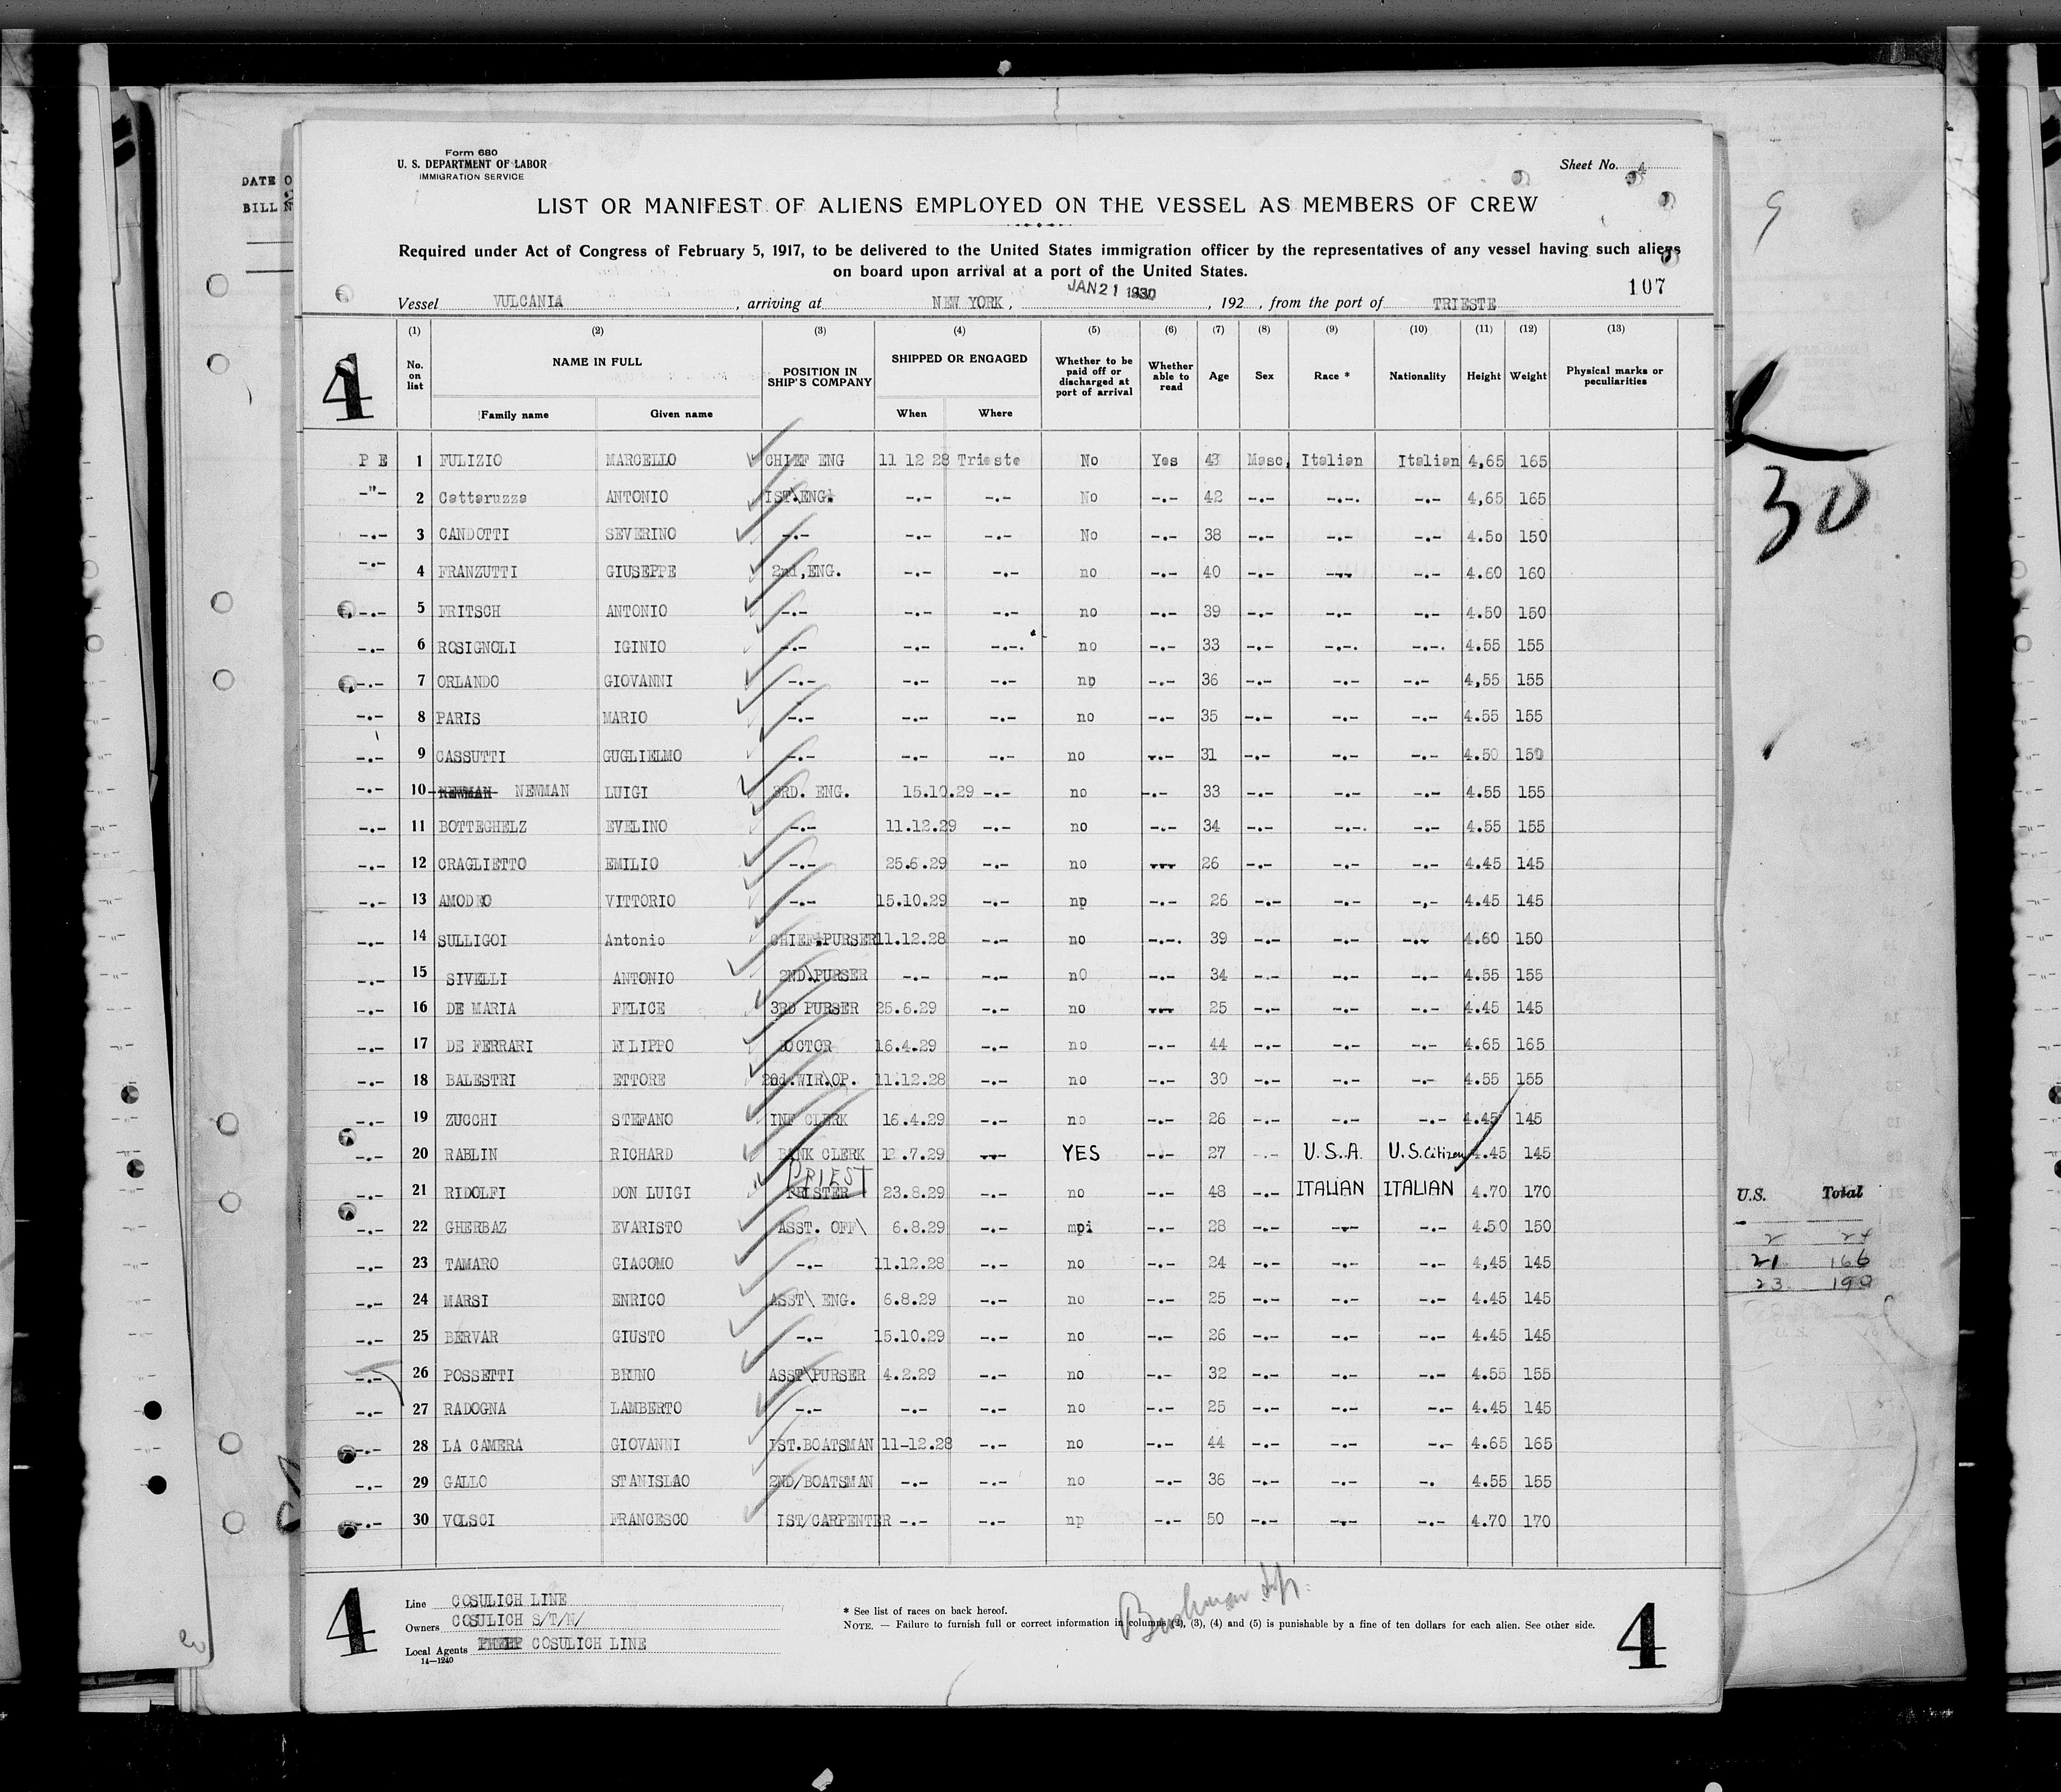 Form 680
U. S. DEPARTMENT OF LABOR
IMMIGRATION SERVICE
Sheet No. 4
DATE O
BILL N
LIST OR MANIFEST OF ALIENS EMPLOYED ON THE VESSEL AS MEMBERS OF CREW
Required under Act of Congress of February 5, 1917, to be delivered to the United States immigration officer by the representatives of any vessel having such aliens
on board upon arrival at a port of the United States.
107
Vessel VULCANIA, arriving at NEW YORK, JAN 21 1930, 192 , from the port of TRIESTE
(1) (2) (3) (4) (5) (6) (7) (8) (9) (10) (11) (12) (13)
4
No. on list NAME IN FULL Family name Given name POSITION IN SHIP'S COMPANY SHIPPED OR ENGAGED When Where Whether to be paid off or discharged at port of arrival Whether able to read Age Sex Race * Nationality Height Weight Physical marks or peculiarities
P E 1 FULIZIO MARCELLO CHIEF ENG 11 12 28 Trieste No Yes 43 Masc, Italian Italian 4,65 165
-"- 2 Cattaruzza ANTONIO IST\ENG. -.- -.- No -.- 42 -.- -.-. -.- 4,65 165
-.- 3 CANDOTTI SEVERINO -.- -.- -.- No -.- 38 -.- -.- -.- 4.50 150
-.- 4 FRANZUTTI GIUSEPPE 2nd,ENG. -.- -.- no -.- 40 -.- -.- -.- 4.60 160
-.- 5 FRITSCH ANTONIO -.- -.- -.- no -.- 39 -.- -.- -.- 4.50 150
-.- 6 ROSIGNOLI IGINIO -.- -.- -.-. no -.- 33 -.- -.-. -.-. 4.55 155
-.- 7 ORLANDO GIOVANNI -.- -.- -.- np -.- 36 -.- -.- -.- 4,55 155
-.- 8 PARIS MARIO -.- -.- -.- no -.- 35 -.- -.- -.- 4.55 155
-.- 9 CASSUTTI GUGLIELMO -.- -.- -.- no -.- 31 -.- -.- -.- 4.50 150
-.- 10 NEWMAN NEWMAN LUIGI 3RD. ENG. 15.10.29 -.- no -.- 33 -.- -.- -.- 4.55 155
-.- 11 BOTTEGHELZ EVELINO -.- 11.12.29 -.- no -.- 34 -.- -.-. -.- 4.55 155
-.- 12 CRAGLIETTO EMILIO -.- 25.6.29 -.- no -.- 26 -.- -.- -.- 4.45 145
-.- 13 AMODEO VITTORIO -.- 15.10.29 -.- np -.- 26 -.- -.- -,- 4.45 145
-.- 14 SULLIGOI Antonio CHIEF.PURSER 11.12.28 -.- no -.-. 39 -.- -.- -.- 4.60 150
-.- 15 SIVELLI ANTONIO 2ND\PURSER -.- -.- nO -.- 34 -.- -.- -.- 4.55 155
-.- 16 DE MARIA FELICE 3RD PURSER 25.6.29 -.- no -.- 25 -.- -.- -.- 4.45 145
-.- 17 DE FERRARI FILIPPO DOCTOR 16.4.29 -.- no -.- 44 -.- -.- -.- 4.65 165
-.- 18 BALESTRI ETTORE 2nd.WIR\OP. 11.12.28 -.- no -.- 30 -.- -.- -.- 4.55 155
-.- 19 ZUCCHI STEFANO INF CLERK 16.4.29 -.- no -.- 26 -.- -.- -.- 4.45 145
-.- 20 RABLIN RICHARD BANK CLERK .7.29 -.- YES -.- 27 -.- U.S.A. U.S. Citizen 4.45 145
PRIEST
-.- 21 RIDOLFI DON LUIGI PRISTER 23.8.29 -.- no -.- 48 -.- ITALIAN ITALIAN 4.70 170
-.- 22 GHERBAZ EVARISTO ASST. OFF\ 6.8.29 -.- mpi -.- 28 -.- -.- -.- 4.50 150
-.- 23 TAMARO GIACOMO -.- 11.12.28 -.- no -.- 24 -.- -.- -.- 4,45 145
-.- 24 MARSI ENRICO ASST\ ENG. 6.8.29 -.- no -.- 25 -.- -.- -.- 4.45 145
-.- 25 BERVAR GIUSTO -.- 15.10.29 -.- no -.- 26 -.- -.- -.- 4.45 145
-.- 26 POSSETTI BRUNO ASST\PURSER 4.2.29 -.- no -.- 32 -.- -.- -.- 4.55 155
-.- 27 RADOGNA LAMBERTO -.- -.- -.- no -.- 25 -.- -.- -.- 4.45 145
-.- 28 LA CAMERA GIOVANNI IST.BOATSMAN 11-12.28 -.- no -.- 44 -.- -.- -.- 4.65 165
-.- 29 GALLO STANISLAO 2ND/BOATSMAN -.- -.- no -.- 36 -.- -.- -. 4.55 155
-.- 30 VOLSCI FRANCESCO IST/CARPENTER -.- -.- np -.- 50 -.- -.- -.- 4.70 170
30
U.S. Total
21 166
23 190
4
Line COSULICH LINE
Owners COSULICH S/T/N/
Local Agents COSULICH LINE
14—1240
* See list of races on back hereof.
NOTE. — Failure to furnish full or correct information in columns (2), (3), (4) and (5) is punishable by a fine of ten dollars for each alien. See other side.
4